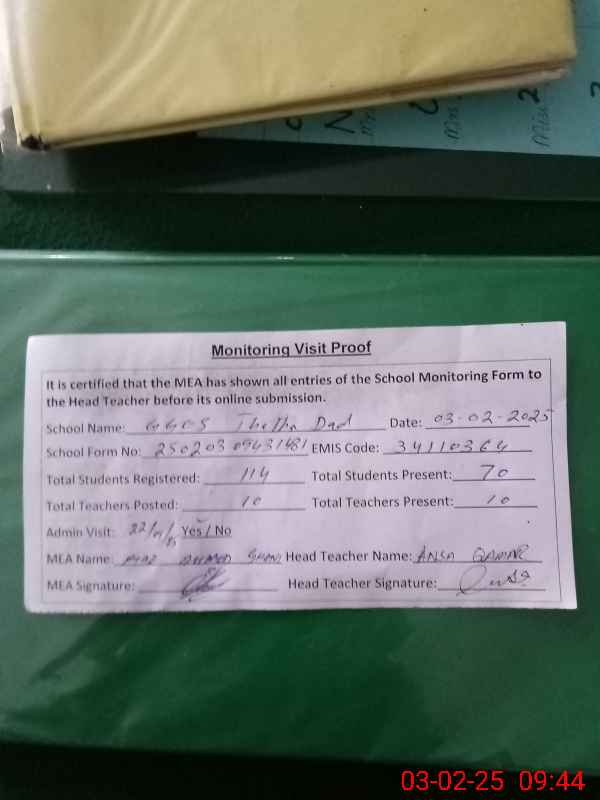 Monitoring Visit Proof
It is certified that the MEA has shown all entries of the School Monitoring Form to
the Head Teacher before its online submission.
School Name: GGES Thatha Dad Date: 03-02-2025
School Form No: EMIS Code: 34110364
Total Students Registered: 114 Total Students Present: 70
Total Teachers Posted: 10 Total Teachers Present: 10
Admin Visit: Yes / No
MEA Name: AHMED Head Teacher Name: ANSA QAMAR
MEA Signature: Head Teacher Signature:
03-02-25 09:44